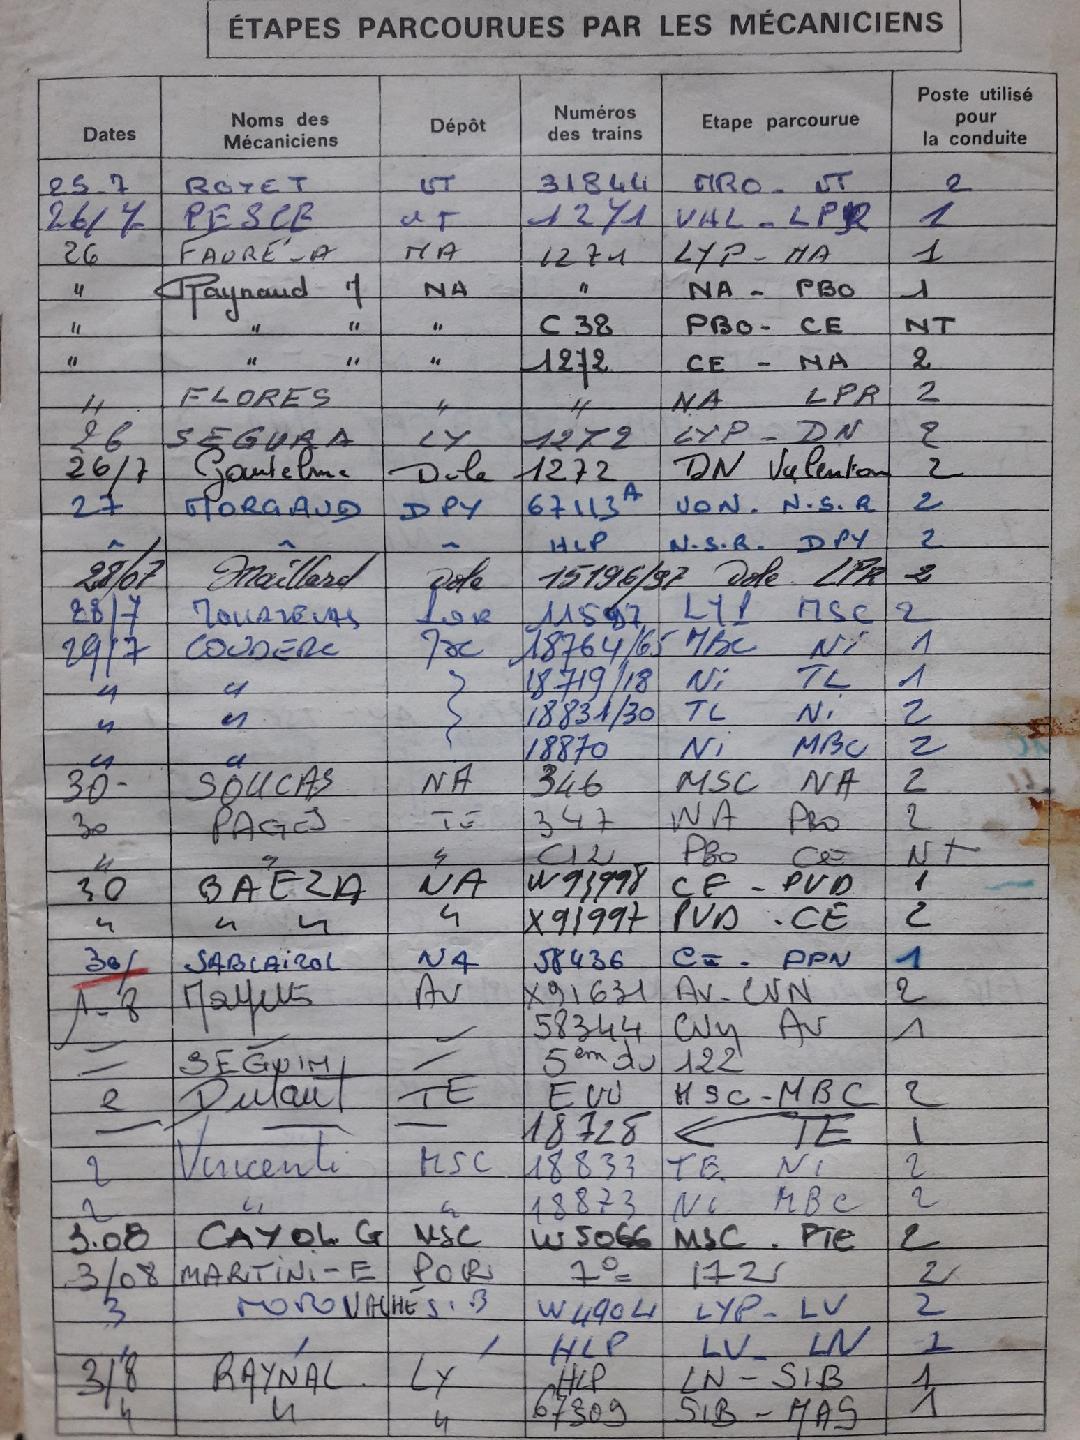 ÉTAPES PARCOURUES PAR LES MÉCANICIENS
Dates Noms des Mécaniciens Dépôt Numéros des trains Etape parcourue Poste utilisé pour la conduite
25.7 ROYET VT 31844 MRO - VT 2
26/7 PESCE VT 1271 VAL - LPR 1
26 FAURE A NA 1271 LYP - NA 1
" Raynaud NA " NA - PBO 1
" " " " C 38 PBO - CE NT
" " " " 1272 CE - NA 2
" FLORES " " NA LPR 2
26 SEGURA LY 1272 LYP - DN 2
26/7 Dole 1272 DN Valenton 2
27 MORGAUD DPY 67113A VON. N.S.R 2
HLP N.S.R. DPY 2
28/07 Maillard Dole 15196/97 Dole LPR 2
28/7 11597 LYP MSC 2
29/7 COUDERC 18764/65 MBC Ni 1
" " 18719/18 Ni TL 1
" " 18831/30 TL Ni 2
" " 18870 Ni MBC 2
30- SOUCAS NA 346 MSC NA 2
30 PAGES TE 347 NA PBO 2
" " " C12 PBO CE NT
30 BAEZA NA W93998 CE - PVD 1
" " " " X91997 PVD - CE 2
30/ SABLAIROL NA 58436 CE - PPN 1
1-8 AV X91631 AV - 2
58344 AV 1
SEGUIN 5em du 122
2 TE EVO MSC - MBC 2
18728 TE 1
2 Vincenti MSC 18833 TE Ni 2
2 " " 18873 Ni MBC 2
3.08 CAYOL G MSC W5066 MSC . PTE 2
3/08 MARTINI-E 7° 172 2
3 W4904 LYP - LV 2
HLP LV - LN 1
3/8 RAYNAL LY HLP LN - SIB 1
" " " 67309 SIB - MAS 1